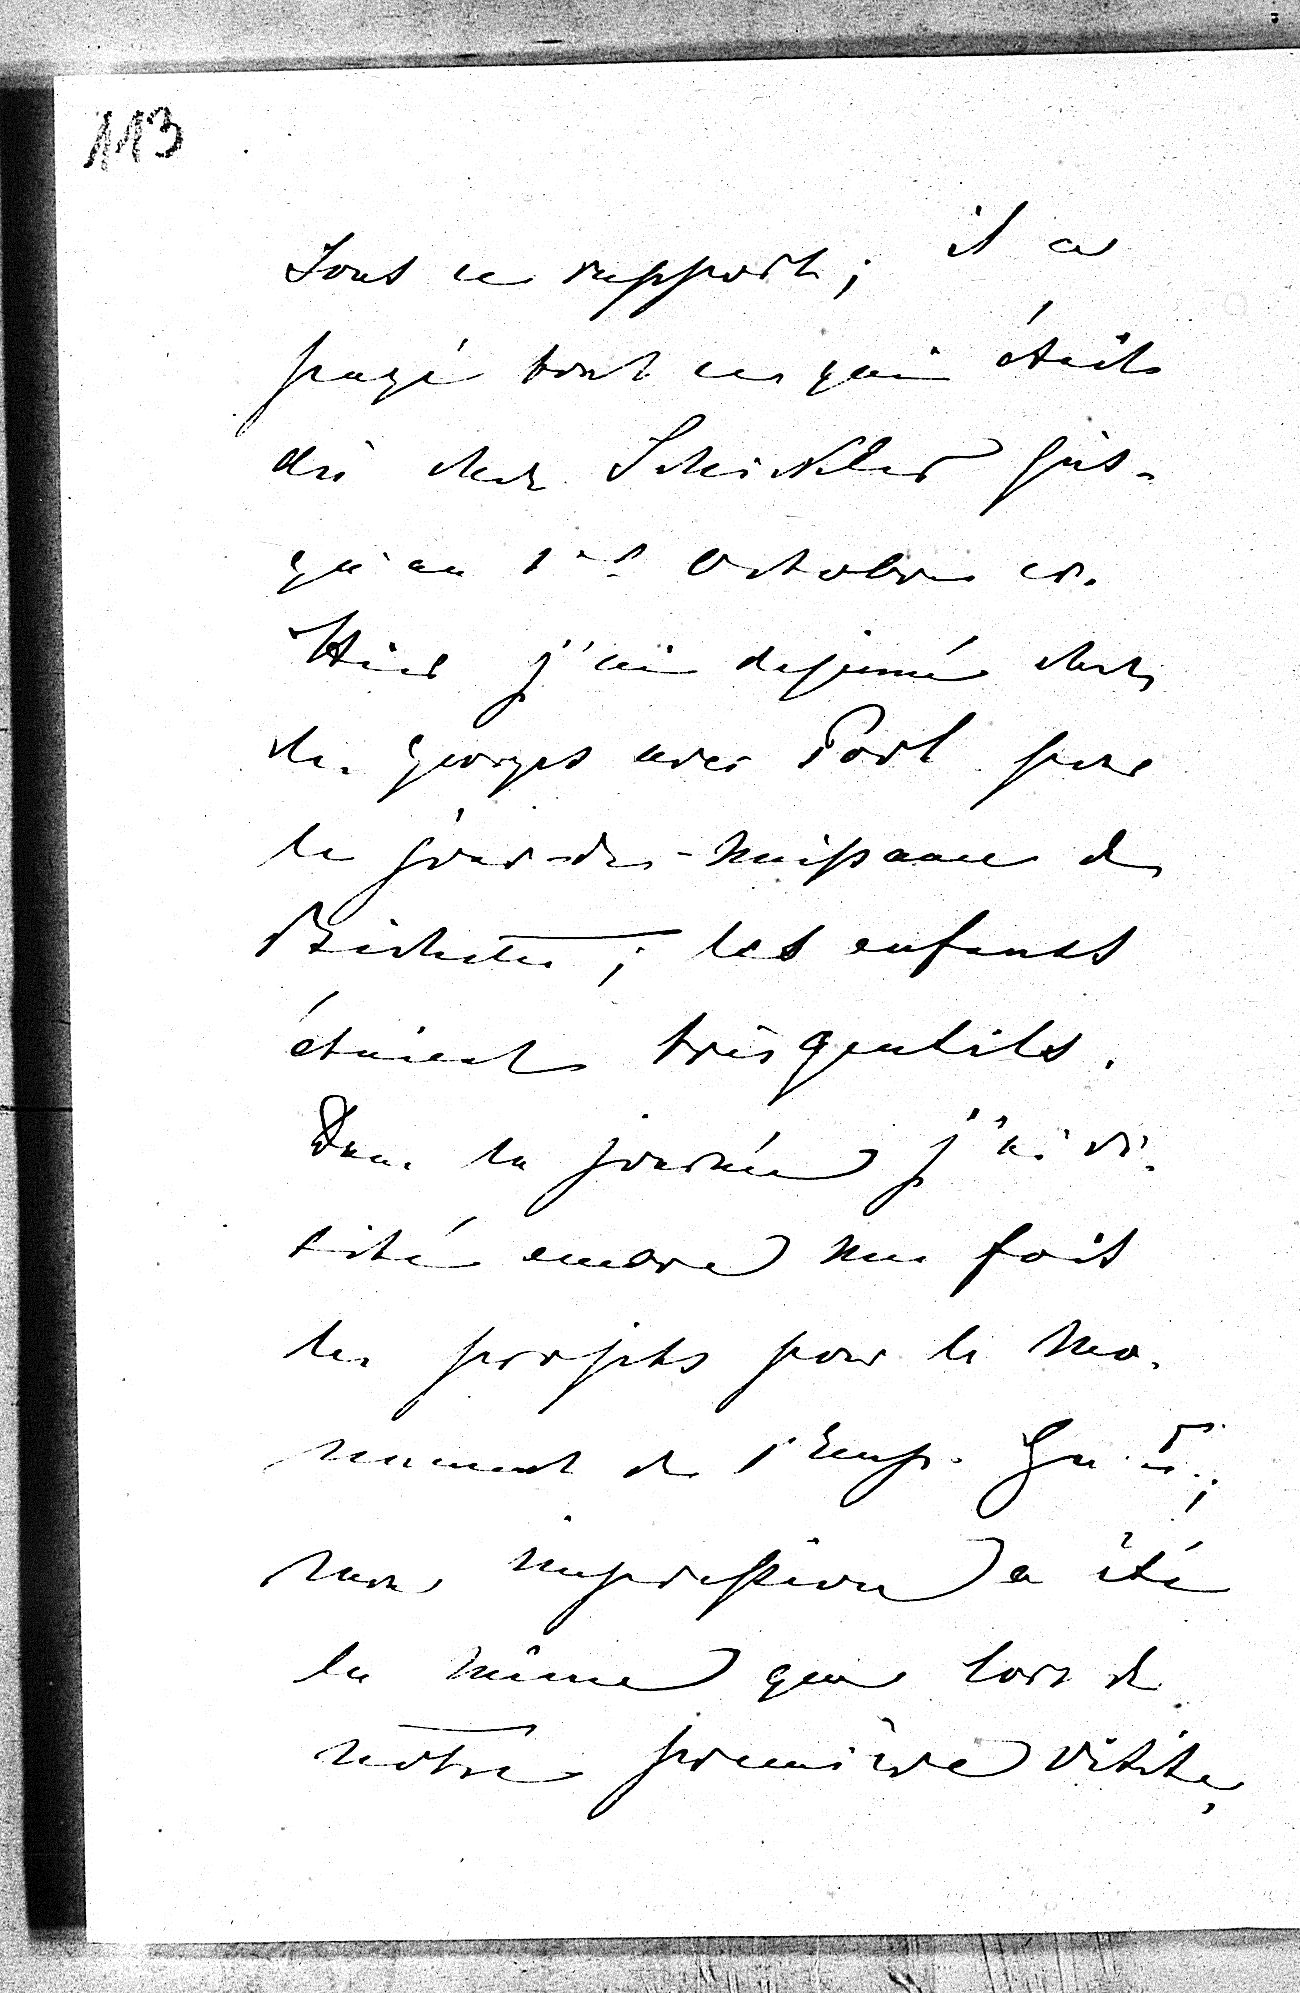 113
sous ce rapport; il a
payé tout ce qui était
dû chez Schickler jus-
qu'au 1er Octobre cr.
Hier j'ai dejeuné chez
les Georges avec Port pour
le jour-de-naissance de
Bichette; les enfants
étaient très gentils.
Dans la journée j'ai vi-
sité encore une fois
les projets pour le mo-
nument de l'Emp. Gu. I.;
mon impression a été
la même que lors de
notre première visite,